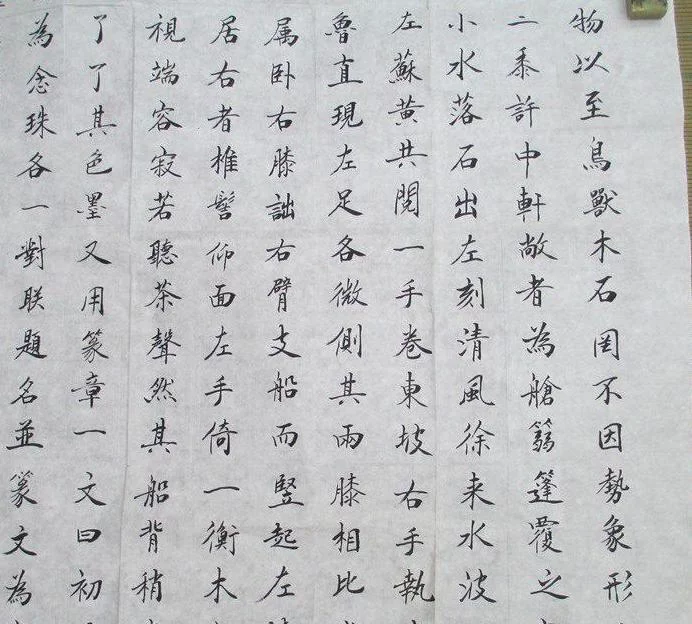 物以至鳥獸木石罔不因勢象形
二黍許中軒敞者為艙篛篷覆之
小水落石出左刻清風徐来水波
左蘇黄共閱一手卷東坡右手執
魯直現左足各微側其兩膝相比
属卧右膝詘右臂支船而竪起左
居右者椎髻仰面左手倚一衡木
視端容寂若聽茶聲然其船背稍
了了其色墨又用篆章一文曰初
為念珠各一對联題名並篆文為